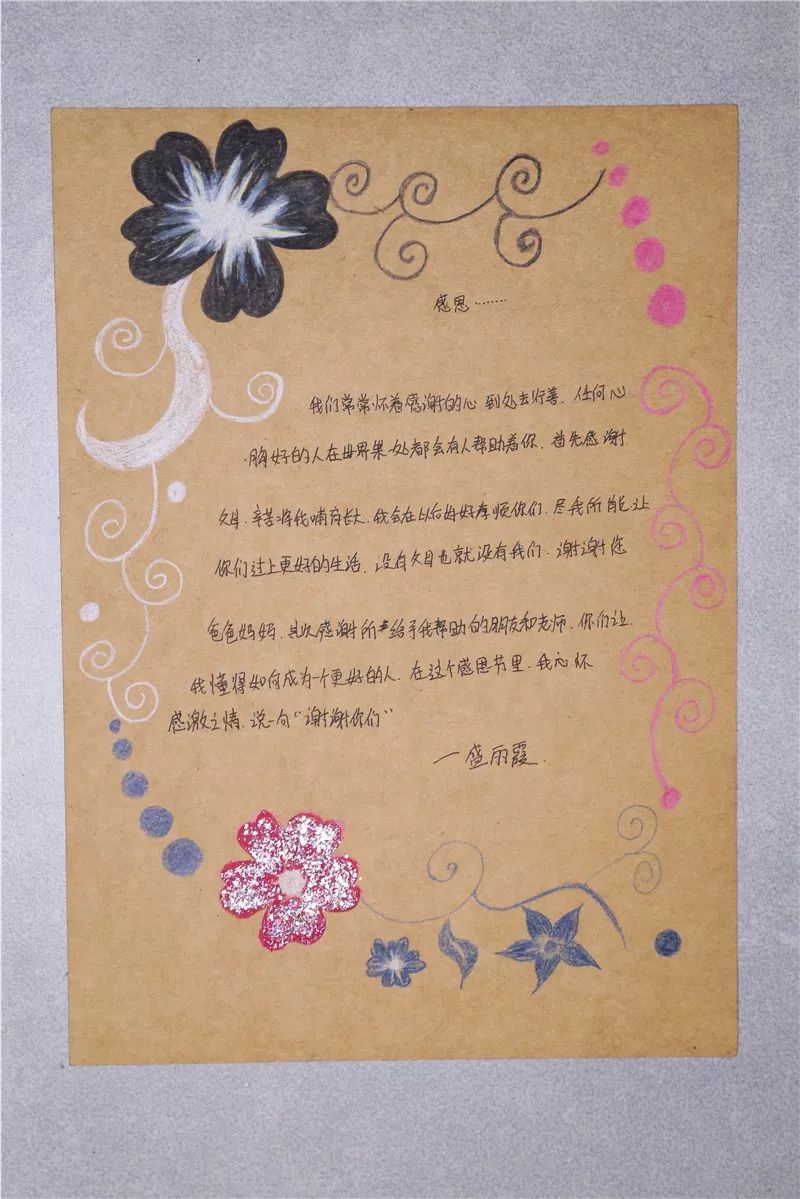 感恩……
我们常常怀着感谢的心到处去行善.任何心
胸好的人在世界某处都会有人帮助着你.首先感谢
父母.辛苦将我哺育长大.我会在以后好孝顺你们.尽我所能让
你们过上更好的生活.没有父母也就没有我们.谢谢您
爸爸妈妈.其次感谢所有给予我帮助的朋友和老师.你们让
我懂得如何成为一个更好的人.在这个感恩节里.我心怀
感激之情.说一句"谢谢你们"
—盛雨霞.